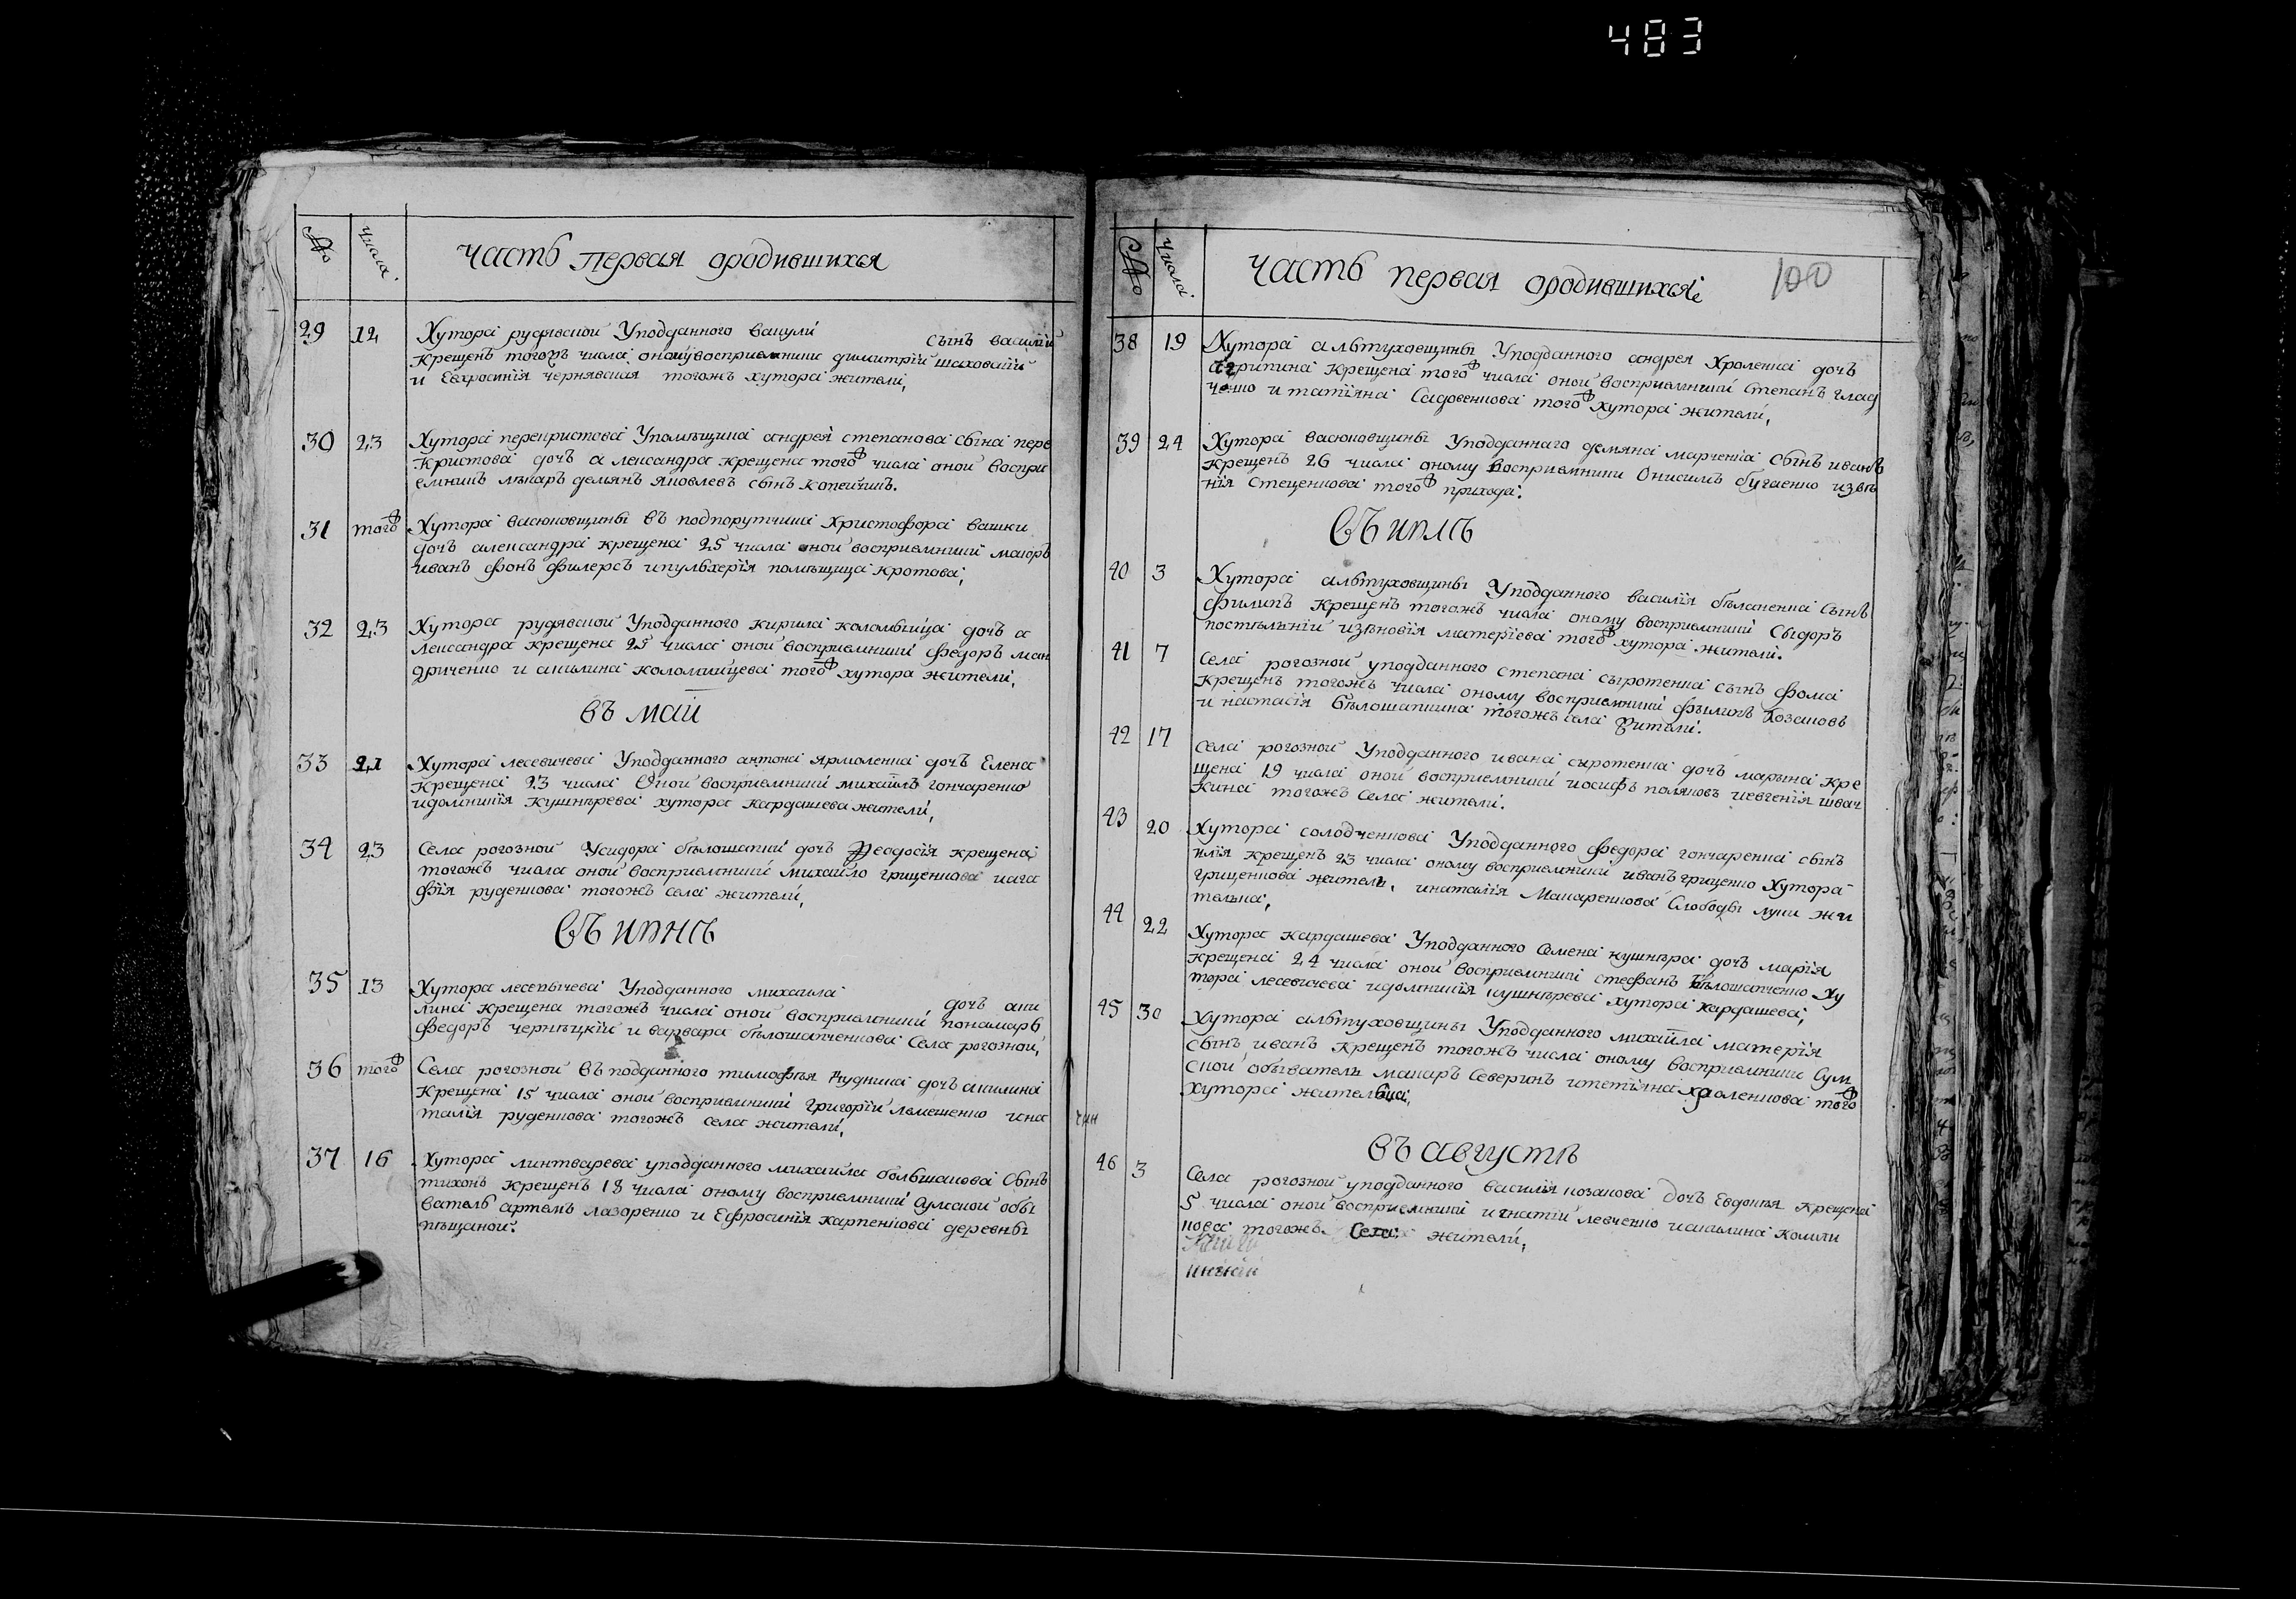 483
№ числа часть первая ородившихся
29 12 Хутора рудявской Уподданного вакули сынъ василій
крещенъ тогожъ числа оному восприемники димитрій шаховскій
и Евхросинія чернявская тогожъ хутора жители,
30 23 Хутора перекристова Упомѣщика андрея степанова сына пере
кристова дочъ александра крещена тогож числа оной воспри
емникъ лѣкаръ демянъ яковлевъ сынъ копейчикъ.
31 тогож Хутора васюковщины въ подпорутчика христофора вашки
дочъ александра крещена 25 числа оной восприемники маіоръ
иванъ фонъ филеръ ипулхерія помѣщица кротова,
32 23 Хутора рудявской Уподданного кирила коломыйца дочъ а
лександра крещена 25 числа оной восприемники федоръ ман
дриченко и акилина коломийцева тогож хутора жители,
въ май
33 21 Хутора лесевичева Уподданного антона ярмоленка дочъ Елена
крещена 23 числа Оной восприемники михайло гончаренко
идомникія кушнѣрева хутора кардашева жители,
34 23 Села рогозной Усидора бѣлошапки дочъ Феадосія крещена
тогожъ числа оной восприемники михайло грищенкова иага
фія руденкова тогожъ села жители,
въ июнѣ
35 13 Хутора лесевычева Уподданного михаила дочъ аки
лина крещена тогожъ числа оной восприемники понамарь
федоръ чернѣцкій и варвара бѣлошапченкова Села рогозной,
36 тогож Села рогозной въ подданного тимофѣя рудника дочъ акилина
крещена 15 числа оной восприемники григорій лемешенко ина
талія руденкова тогожъ села жители,
37 16 Хутора линтварева уподданного михаила большакова Сынъ
тихонъ крещенъ 18 числа оному восприемники сумской обы
ватель артемъ лазоренко и Ефросинія карпенкова деревны
пѣщаной.
№ числа часть первая ородившихся 100
38 19 Хутора альтуховщины Уподданного андрея Хроленка дочъ
агрипина крещена тогож числа оной восприемники степанъ глад
ченко и татіяна Садовенкова тогож хутора жители,
39 24 Хутора васюковщины Уподданнаго демяна марченка Сынъ иванъ
крещенъ 26 числа оному восприемники Онисимъ бугаенко изѣнъ
нія стеценкова тогож прихода.
въ июлѣ
40 3 Хутора альтуховщины Уподданного василія бѣланенка Сынъ
филипъ крещенъ тогожъ числа оному восприемники Сыдоръ
изѣновія матеріева тогож хутора жители.
41 7 села рогозной уподданного степана сыротенка сынъ фома
крещенъ тогожъ числа оному восприемники фылипъ козаковъ
и настасія бѣлошапкина тогожъ села жители.
42 17 села рогозной Уподданного ивана сыротенка дочъ марына кре
щена 19 числа оной восприемники иосифъ поляковъ иевгенія швач
кина тогожъ села жители.
43 20 Хутора солодченкова Уподданного федора гончаренка сынъ
илія крещенъ 23 числа оному восприемники иванъ гриценко Хутора
гриценкова житель, инаталія Макаренкова Слободы луки жи
телька,
44 22 Хутора кардашева Уподданного Семена кушнѣра дочъ марія
крещена 24 числа оной восприемники стефанъ бѣлошапченко ху
тора лесевичева идомникія кушнѣрева хутора кардашева,
45 30 Хутора альтуховщины Уподданного михайла матерія
сынъ иванъ крещенъ тогожъ числа оному восприемники Сум
ской обыватель макаръ Северинъ итетіяна хроленкова тогож
хутора жителька,
въ августѣ
46 3 Села рогозной уподданного василія козакова дочъ Евдокія крещена
5 числа оной восприемники игнатій левченко иакилина комли
кова тогожъ Села жители,